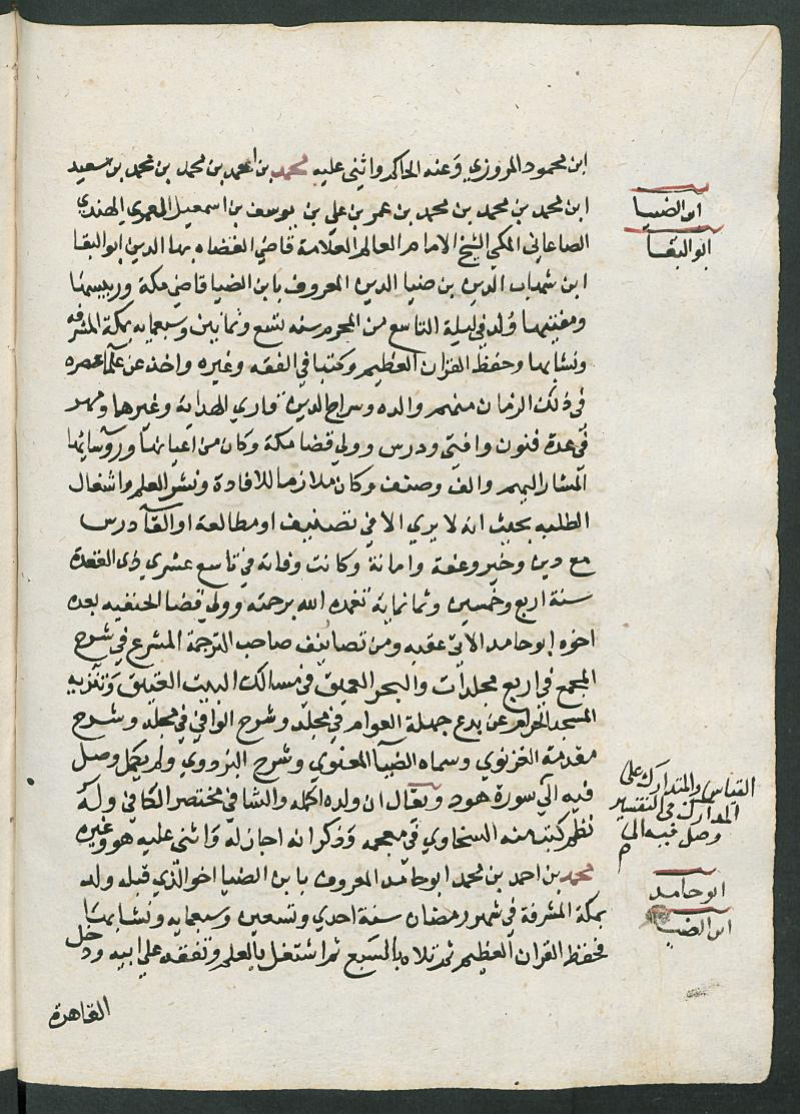 ابن محمود المروزي وعنه الحاكم واثنى عليه محمد بن احمد بن محمد بن محمد بن سعيد
ابن محمد بن محمد بن محمد بن عمر بن علي بن يوسف بن اسمعيل العمري الهندي
الصاغاني المكي الشيخ الامام العالم العلامة قاضي القضاه بها الدين ابو البقا
ابن شهاب الدين بن ضيا الدين المعروف بابن الضيا قاضي مكة ورييسها
ومفتيها ولد في ليلة التاسع من المحرم سنه تسع وثمانين وسبعمايه بمكة المشرفه
ونشا بها وحفظ القران العظيم وكتبا في الفقه وغيره واخذ عن علما عصره
في ذلك الزمان منهم والده وسراج الدين قاري الهداية وغيرها ومهر
في عدة فنون وافتى ودرس وولي قضا مكة وكان من اعيانها وروسايها
المشار اليهم والف وصنف وكان ملازما للافادة ونشر العلم واشغال
الطلبه بحيث انه لا يري الا في تصنيف او مطالعة او القآ درس
مع دين وخير وعفة وامانة وكانت وفاته في تاسع عشري ذي القعدة
سنة اربع وخمسين وثمانماية تغمده الله برحمته وولي قضا الحنفيه بعده
اخوه ابو حامد الاتي عقبه ومن تصانيف صاحب الترجمة المشرع في شرح
المجمع في اربع مجلدات والبحر العميق في مسالك البيت العتيق وتنزيه
المسجد الحرام عن بدع جهلة العوام في مجلد وشرح الوافي في مجلد وشرح
مقدمة الغزنوي وسماه الضيآ المعنوي وشرح البزدوي ولم يكمل وصل
فيه الي سورة هود ويقال ان ولده اكمله والشافي مختصر الكافي وله
نظم كتب منه السخاوي في معجمه وذكر انه اجاز له واثنى عليه هو وغيره
محمد بن احمد بن محمد ابو حامد المعروف بابن الضيا اخو الذي قبله ولد
بمكة المشرفة في شهر رمضان سنة احدي وتسعين وسبعمايه ونشا بها
فحفظ القران العظيم ثم تلاه بالسبع ثم اشتغل بالعلم وتفقه علي ابيه ودخل
القاهرة
ابن الضيا
ابو البقا
والمتدارك على
المدارك في التفسير
وصل فيه الي
ابو حامد
ابن الضيا